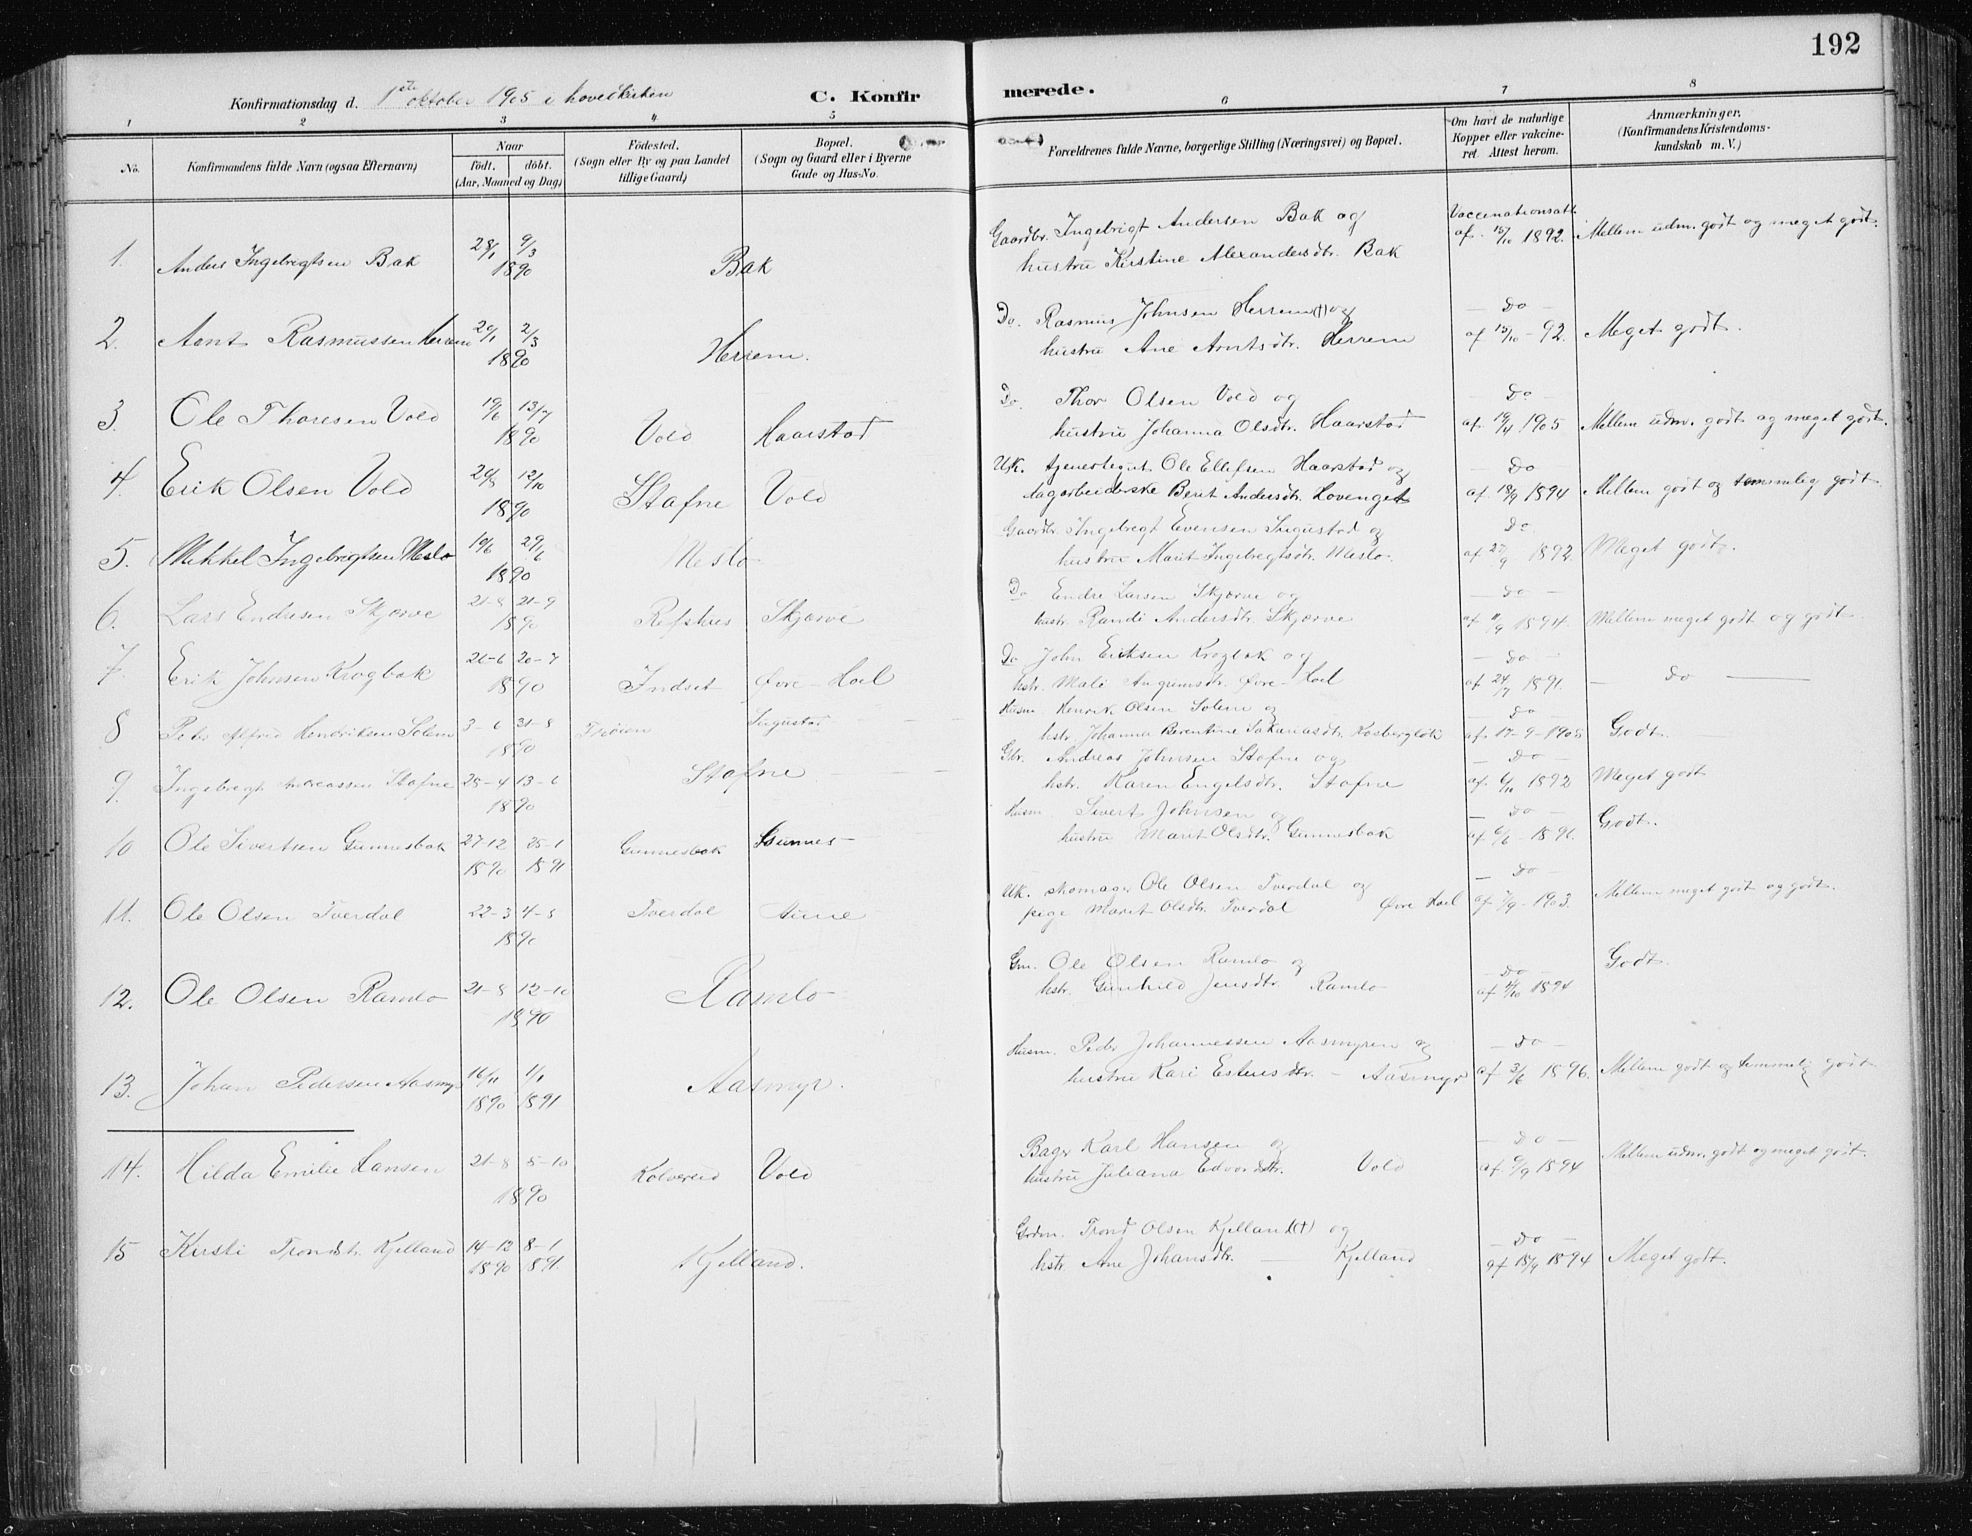 192
Konfirmationsdag d. 1ste oktober 1905 i hovedkirken C. Konfirmerede.
1 2 3 4 5 6 7 8
No. Konfirmandens fulde Navn (ogsaa Efternavn) Naar født. døbt. (Aar, Maaned og Dag) Fødested. (Sogn eller By og paa Landet tillige Gaard) Bopæl. (Sogn og Gaard eller i Byerne Gade og Hus-No. Forældrenes fulde Navne, borgerlige Stilling (Næringsvei) og Bopæl. Om havt de naturlige Kopper eller vakcineret. Attest herom. Anmærkninger. (Konfirmandens Kristendomskundskab m. V.)
1. Anders Ingebrigtsen Bak 28/1 9/3 1890 Bak Gaardbr. Ingebrigt Andersen Bak og Vaccinationsatt.
hustru Kirstine Alexandersdtr. Bak af 15/10 1892. Mellem udm. godt og meget godt.
2. Arnt Rasmussen Herrem 20/1 2/3 1890 Herrem. Do. Rasmus Johnsen Herrem (†) og — Do —
hustru Ane Arntsdtr. Herrem af 15/10 - 92. Meget godt.
3. Ole Thoresen Vold 19/6 13/7 1890 Vold Haarstad Do. Thor Olsen Vold og — Do —
hustru Johanna Olsdtr. Haarstad af 19/4 1905 Mellem udm. godt og meget godt.
4. Erik Olsen Vold 24/8 12/10 1890 Stafne Vold Uk. tjenestegut Ole Ellefsen Haarstad og — Do —
dagarbeiderske Berit Andersdtr. Lovenget af 18/9 1894 Mellem godt og temmelig godt
5. Mikkel Ingebrigtsen Meslo 10/6 29/6 1890 Meslo Gaardbr. Ingebrigt Evensen Ingustad og Do.
hustru Marit Ingebrigtsdtr. Meslo. af 27/9 1892. Meget godt.
6. Lars Endresen Skjørve 21-8 21-9 1890 Refshus Skjørve Do Endre Larsen Skjørve og — Do —
hustr. Randi Andersdtr. Skjørve af 11/9 1894. Mellem meget godt og godt.
7. Erik Johnsen Krogbak 26-6 20-7 1890 Indset Øvre-Hoel Do John Eriksen Krogbak og — Do —
hstr. Mali Angrimsdtr. Øvre-Hoel af 24/7 1891. — Do —
8 Peder Alfred Hendriksen Solem 3-6 31-8 1890 Trøien Ingustad Husm. Henrik Olsen Solem og — Do —
hstr. Johanna Berentine Sakariasdtr. af 17-9-1905 Godt.
9. Ingebrigt Andreassen Stafne 28-4 13-6 1890 Stafne Gbr. Andreas Johnsen Stafne og — Do —
hstr. Karen Engelsdtr. Stafne af 6/10 1892 Meget godt
10 Ole Sivertsen Gunnesbak 27-12 1890 25-1 1891 Gunnesbak Gunnes Husm. Sivert Johnsen og — Do —
hustru Marit Olsdtr. Gunnesbak af 6/6 - 1896. Godt.
11. Ole Olsen Tverdal 22-3 4-8 1890 Tverdal Uk. skomager Ole Olsen Tverdal og — Do —
pige Marit Olsdtr. Tverdal Øvre Hoel af 7/9 - 1903. Mellem meget godt og godt.
12. Ole Olsen Ramlo 21-8 12-10 1890 Ramlo Gm. Ole Olsen Ramlo og — Do — Godt.
hstr. Gunhild Jensdtr Ramlo af 1894
13. Johan Pedersen Aasmyr 16/11 1890 1/1 1891 Aasmyr. Husm. Peder Johannessen Aasmyren og — Do —
hustru Kari Estensdtr. - Aasmyr af 3/6 1896. Mellem godt og temmelig godt
14. Hilda Emilie Hansen 21-8 5-10 1890 Kolvereid Vold Bager Karl Hansen og — Do —
hustru Juliana Edvardsdtr. Vold af 9/9 1894 Mellem udm. godt og meget godt.
15 Kirsti Trondsdtr. Kjelland 14-12 1890 8-1 1891. Kjelland. Grdm. Trond Olsen Kjelland (†) og — Do —
hstr. Ane Johansdtr. — Kjelland af 18/9 1894 Meget godt.